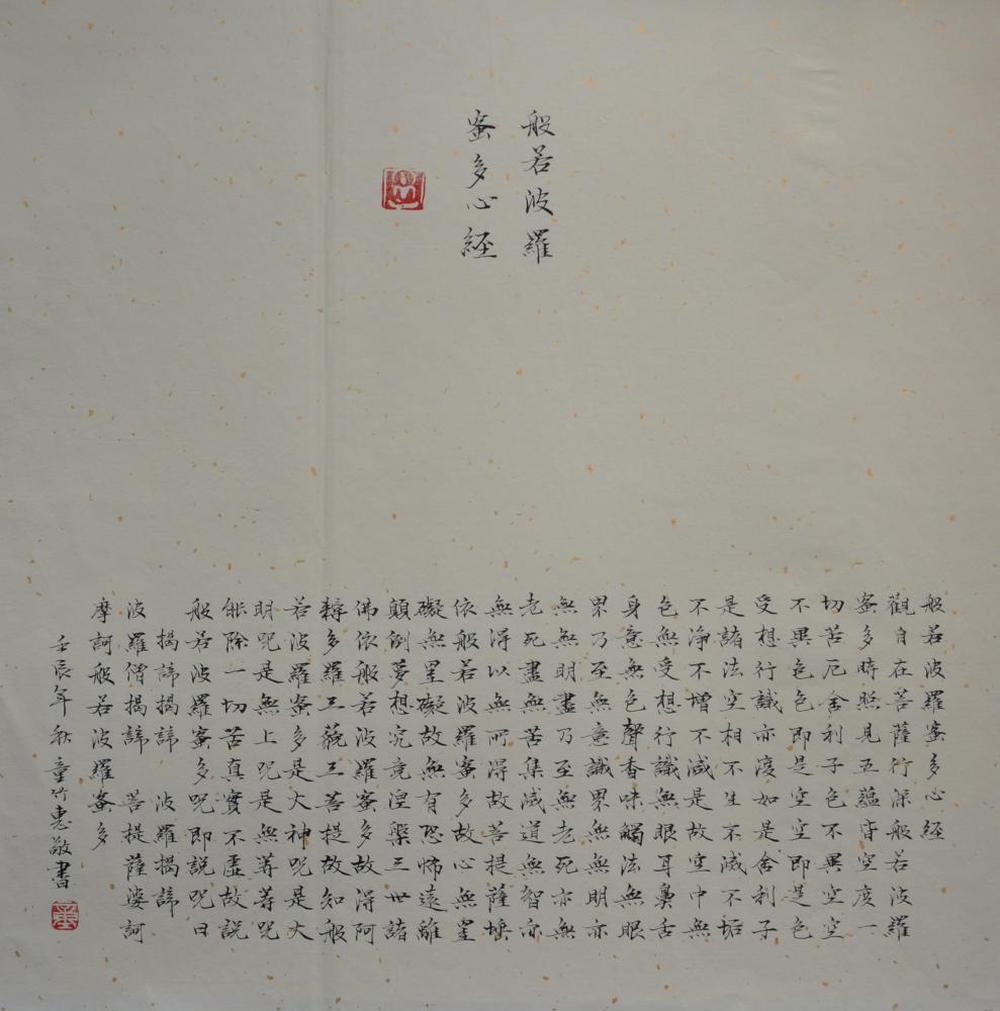 般若波羅
蜜多心經
般若波羅蜜多心經
觀自在菩薩行深般若波羅
蜜多時照見五蘊皆空度一
切苦厄舍利子色不異空空
不異色色即是空空即是色
受想行識亦復如是舍利子
是諸法空相不生不滅不垢
不淨不增不減是故空中無
色無受想行識無眼耳鼻舌
身意無色聲香味觸法無眼
界乃至無意識界無無明亦
無無明盡乃至無老死亦無
老死盡無苦集滅道無智亦
無得以無所得故菩提薩埵
依般若波羅蜜多故心無罣
礙無罣礙故無有恐怖遠離
顛倒夢想究竟涅槃三世諸
佛依般若波羅蜜多故得阿
耨多羅三藐三菩提故知般
若波羅蜜多是大神咒是大
明咒是無上咒是無等等咒
能除一切苦真實不虛故說
般若波羅蜜多咒即說咒曰
揭諦揭諦 波羅揭諦
波羅僧揭諦 菩提薩婆訶
摩訶般若波羅蜜多
壬辰年秋 童竹惠敬書